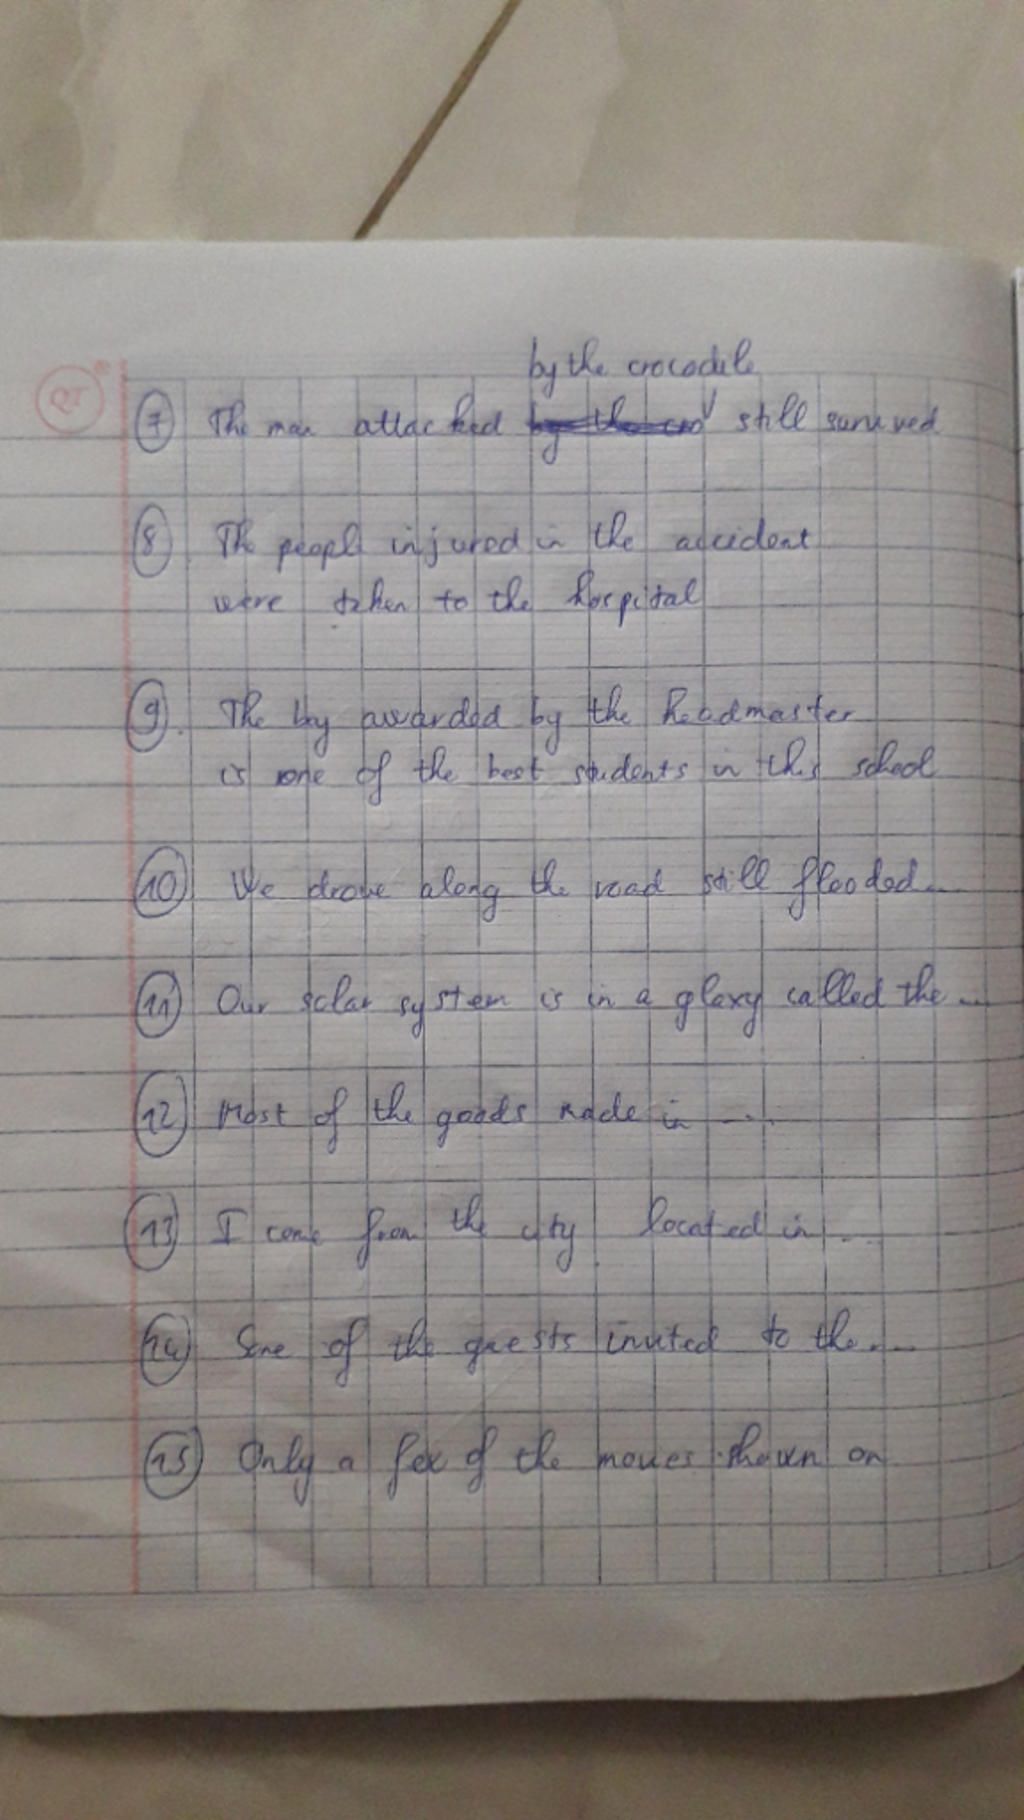 by the crocodile
QT
7 The man attacked by the cro still survived
8 The people injured in the accident
were taken to the hospital
9. The boy awarded by the headmaster
is one of the best students in this school
10 We drove along the road still flooded...
11 Our solar system is in a glaxy called the ...
12 Most of the goods made in ....
13 I come from the city located in ...
14 Some of the guests invited to the ....
15 Only a few of the movies shown on